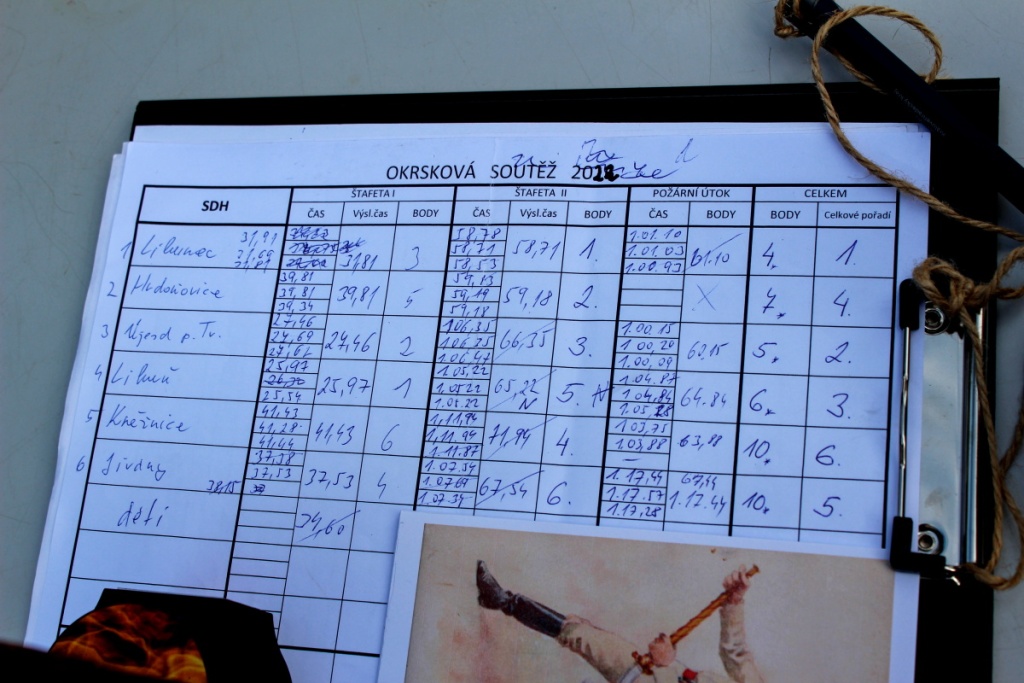 OKRSKOVÁ SOUTĚŽ 2022
SDH ŠTAFETA I ŠTAFETA II POŽÁRNÍ ÚTOK CELKEM
ČAS Výsl.čas BODY ČAS Výsl.čas BODY ČAS BODY BODY Celkové pořadí
58,78 1.01.10
1 31,91 58,71 58,71 1. 1.01.03 61.10 4. 1.
31,81 3 58,53 1.00.93
39,81 59,13
2 39,81 39,81 5 59,19 59,18 2. X 7. 4.
39,34 59,18
27,46 1.06.35 1.00.15
3 27,69 27,46 2 1.06.25 66,35 3. 1.00.20 60.15 5. 2.
27,61 1.06.47 1.00.09
25,97 1.05,22 1.04.87
4 Libuň 25,97 1 1.05.22 65,22 5. N 1.04.84 64.84 6. 3.
25,54 1.05.22 N 1.05,28
41,43 1,11,94 1.03,75
5 Kněžnice 41,28 41,43 6 1,11.94 71,94 4. 1.03,88 63,88 10. 6.
41,44 1.11.87 –
37,38 1.07.54 1.17,44
6 Jivany 37,53 37,53 4 1.07.69 67,54 6. 1.17.57 1.17.44 10. 5.
38,15 1.07.34 1.17,28
děti 34,60